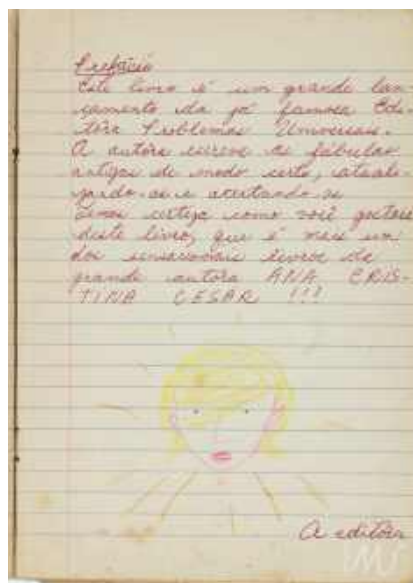 Prefácio
Este livro é um grande lan-
çamento da já famosa Edi-
tôra Problemas Universais.
A autôra escreve as fábulas
antigas de modo certo, atuali-
zando-as e acertando-se
Temos certeza como você gostará
deste livro, que é mais um
dos sensacionais livros da
grande autôra ANA CRIS-
TINA CESAR !!!
A editôra
IMS